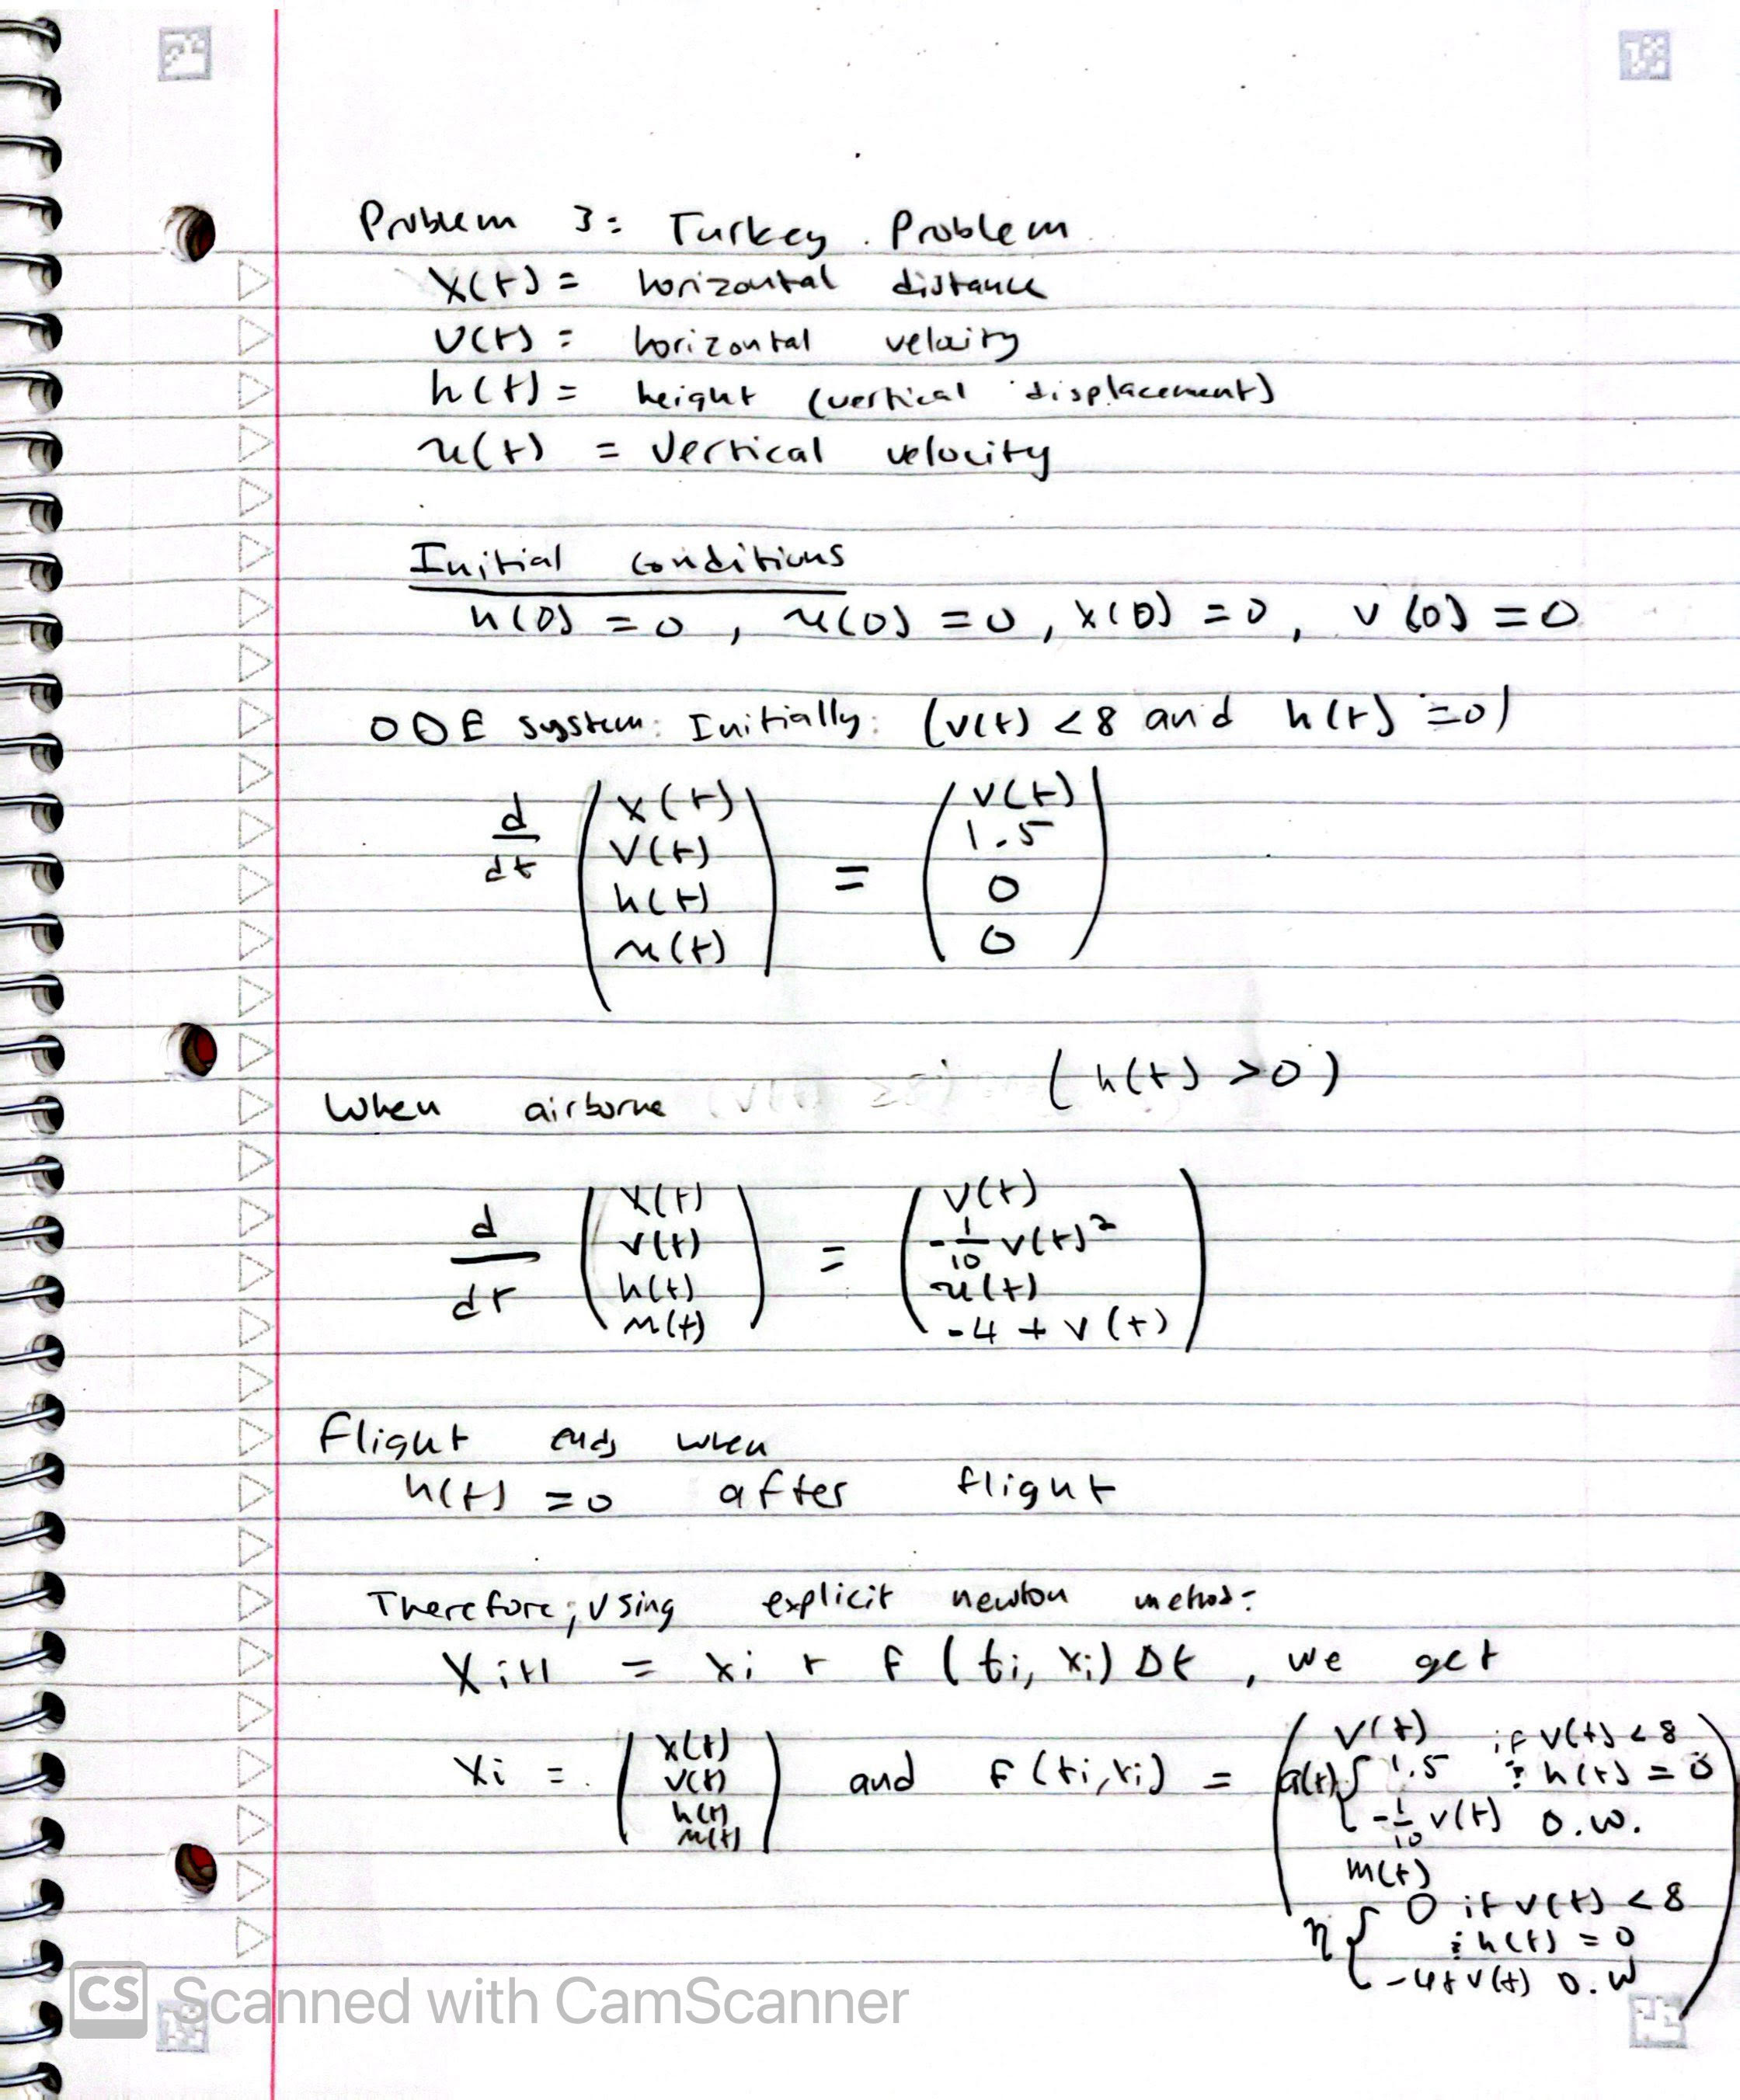 Problem 3: Turkey Problem
x(t) = horizontal distance
v(t) = horizontal velocity
h(t) = height (vertical displacement)
u(t) = vertical velocity
Initial conditions
h(0) = 0, u(0) = 0, x(0) = 0, v(0) = 0
ODE system: Initially: (v(t) < 8 and h(t) = 0)
d/dt ( x(t) = ( v(t)
v(t) 1.5
h(t) 0
u(t) ) 0 )
When airborne (h(t) > 0)
d/dt ( x(t) = ( v(t)
v(t) -1/10 v(t)²
h(t) u(t)
u(t) ) -4 + v(t) )
Flight ends when
h(t) = 0 after flight
Therefore, using explicit newton method:
Xi+1 = xi + f (ti, xi) Δt, we get
xi = ( x(t) and f(ti, xi) = ( v(t) if v(t) < 8
v(t) a(t) { 1.5 ; h(t) = 0
h(t) -1/10 v(t) o.w.
u(t) ) m(t)
{ 0 if v(t) < 8
; h(t) = 0
-4+v(t) o.w )
CS Scanned with CamScanner